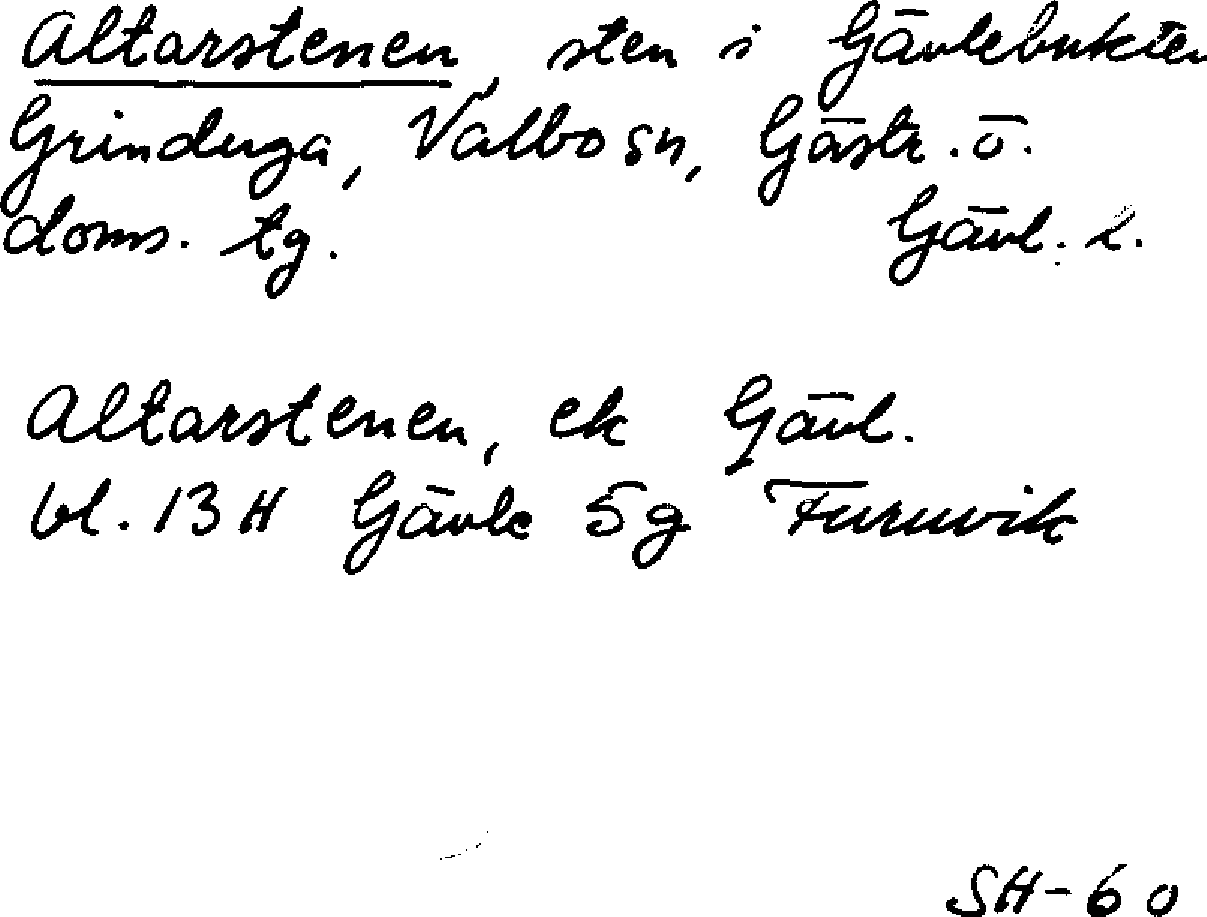 Altarstenen, sten i Gävlebukten
Grinduga, Valbo sn, Gästr. ö.
doms. tg. Gävl. l.
Altarstenen, ek Gävl.
bl. 13H Gävle 5g Furuvik
SH-60